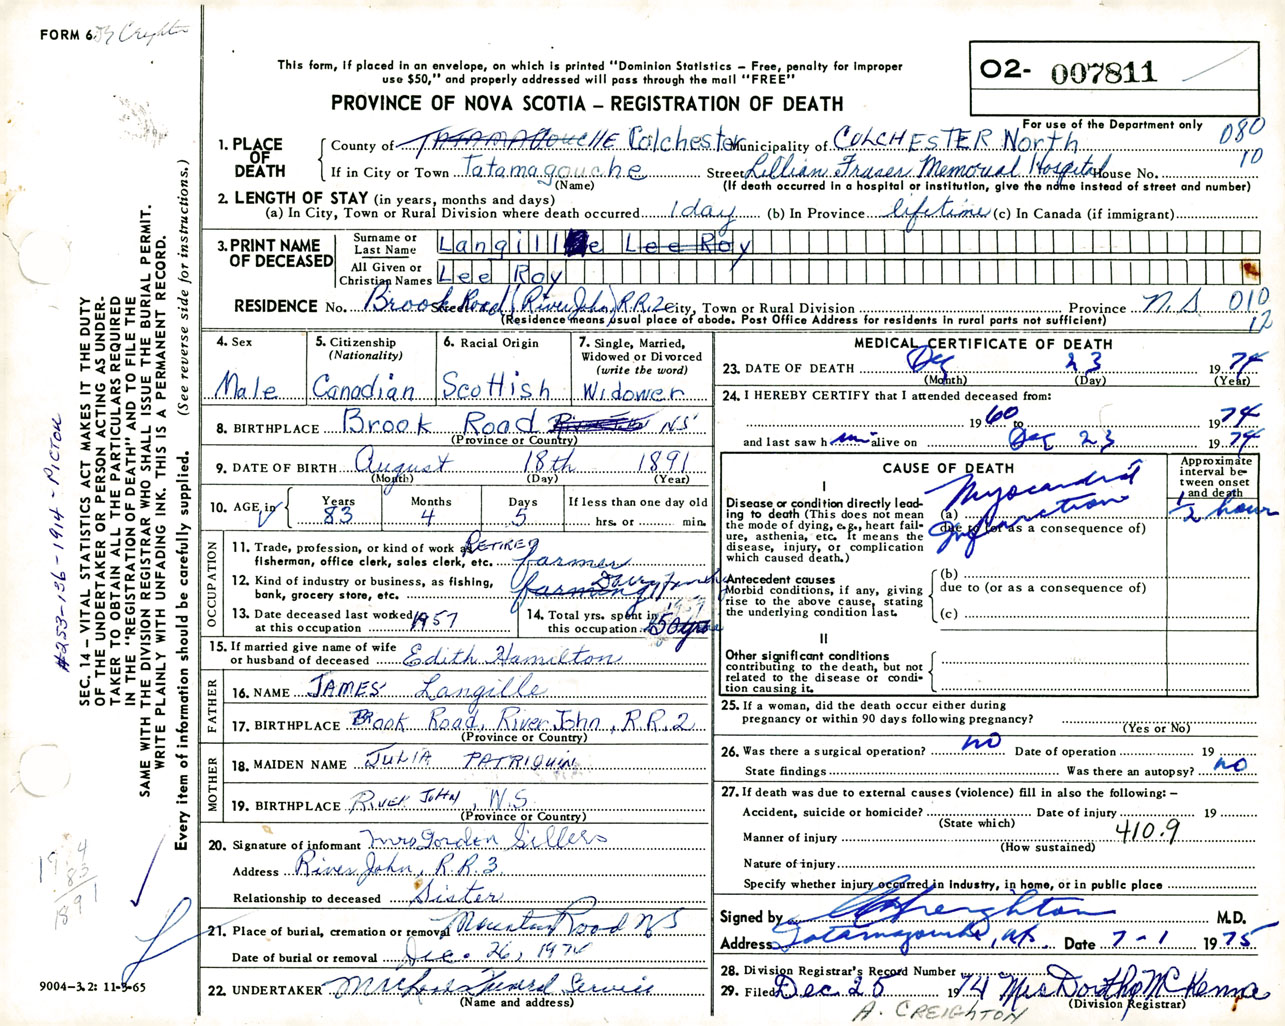 FORM 6.
Creighton
This form, if placed in an envelope, on which is printed "Dominion Statistics – Free, penalty for improper
use $50," and properly addressed will pass through the mail "FREE"
PROVINCE OF NOVA SCOTIA – REGISTRATION OF DEATH
O2- 007811
For use of the Department only
080
10
1. PLACE OF DEATH
County of TATAMAGOUCHE Colchester Municipality of COLCHESTER North
If in City or Town Tatamagouche Street Lillian Fraser Memorial Hospital House No.
(Name) (If death occurred in a hospital or institution, give the name instead of street and number)
2. LENGTH OF STAY (in years, months and days)
(a) In City, Town or Rural Division where death occurred 1 day (b) In Province lifetime (c) In Canada (if immigrant)
3. PRINT NAME OF DECEASED
Surname or Last Name Langille Lee Roy
All Given or Christian Names Lee Roy
RESIDENCE No. Brook Road (River John) R.R.2 City, Town or Rural Division Province N.S. 010
12
(Residence means usual place of abode. Post Office Address for residents in rural parts not sufficient)
4. Sex
Male
5. Citizenship
(Nationality)
Canadian
6. Racial Origin
Scottish
7. Single, Married,
Widowed or Divorced
(write the word)
Widower
8. BIRTHPLACE Brook Road NS
(Province or Country)
9. DATE OF BIRTH August 18th 1891
(Month) (Day) (Year)
10. AGE in Years 83 Months 4 Days 5 If less than one day old
hrs. or min.
OCCUPATION
11. Trade, profession, or kind of work as RETIRED
fisherman, office clerk, sales clerk, etc. farmer
12. Kind of industry or business, as fishing,
bank, grocery store, etc. farming
13. Date deceased last worked at this occupation 1957
14. Total yrs. spent in this occupation 50 yrs
1957
15. If married give name of wife
or husband of deceased Edith Hamilton
FATHER
16. NAME JAMES Langille
17. BIRTHPLACE Brook Road, River John, R.R.2
(Province or Country)
MOTHER
18. MAIDEN NAME JULIA PATRIQUIN
19. BIRTHPLACE RIVER JOHN, N.S
(Province or Country)
20. Signature of informant Mrs Gordon Sellers
Address River John, R.R.3
Relationship to deceased Sister
21. Place of burial, cremation or removal Mountain Road NS
Date of burial or removal Dec. 26, 1974
22. UNDERTAKER Funeral Service
(Name and address)
MEDICAL CERTIFICATE OF DEATH
23. DATE OF DEATH Dec 23 1974
(Month) (Day) (Year)
24. I HEREBY CERTIFY that I attended deceased from:
1960 to 1974
and last saw him alive on Dec 23 1974
CAUSE OF DEATH
Approximate interval between onset and death
I
Disease or condition directly leading to death (This does not mean the mode of dying, e.g., heart failure, asthenia, etc. It means the disease, injury, or complication which caused death.)
(a) Myocardial Infarction 1/2 hour
due to (or as a consequence of)
Antecedent causes
Morbid conditions, if any, giving rise to the above cause, stating the underlying condition last.
(b)
due to (or as a consequence of)
(c)
II
Other significant conditions
contributing to the death, but not related to the disease or condition causing it.
25. If a woman, did the death occur either during
pregnancy or within 90 days following pregnancy?
(Yes or No)
26. Was there a surgical operation? no Date of operation 19
State findings Was there an autopsy? no
27. If death was due to external causes (violence) fill in also the following: –
Accident, suicide or homicide? Date of injury 19
(State which)
Manner of injury 410.9
(How sustained)
Nature of injury
Specify whether injury occurred in industry, in home, or in public place
Signed by Creighton M.D.
Address Tatamagouche, NS. Date 7-1 1975
28. Division Registrar's Record Number
29. Filed Dec 25 1974 Mrs Dorothy McKenna
(Division Registrar)
A. CREIGHTON
#253-156-1914-PICTOU
SEC. 14 – VITAL STATISTICS ACT MAKES IT THE DUTY
OF THE UNDERTAKER OR PERSON ACTING AS UNDER-
TAKER TO OBTAIN ALL THE PARTICULARS REQUIRED
IN THE "REGISTRATION OF DEATH" AND TO FILE THE
SAME WITH THE DIVISION REGISTRAR WHO SHALL ISSUE THE BURIAL PERMIT.
WRITE PLAINLY WITH UNFADING INK. THIS IS A PERMANENT RECORD.
Every item of information should be carefully supplied. (See reverse side for instructions.)
1974
83
1891
9004–3.2: 11-3-65